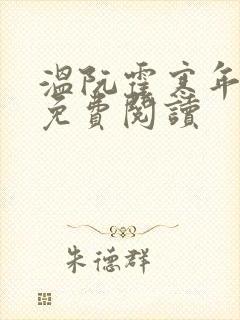 溫阮霍寒年
免費閱讀
朱德群